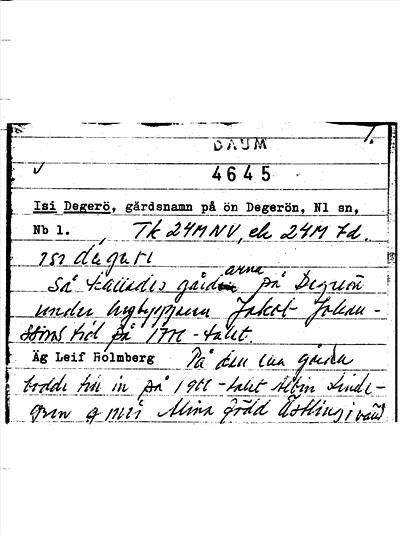 DAUM 1.
4645
Isi Degerö, gårdsnamn på ön Degerön, Nl sn,
Nb l. Tk 24M NV, ek 24M 7d.
isi degerö
Så kallades gårdarna på Degerön
under Jakob Johan-
tid på 1700-talet.
Äg Leif Holmberg På den ena gården
bodde till in på 1900-talet Albin Linde-
gren g m Alma född Östling i